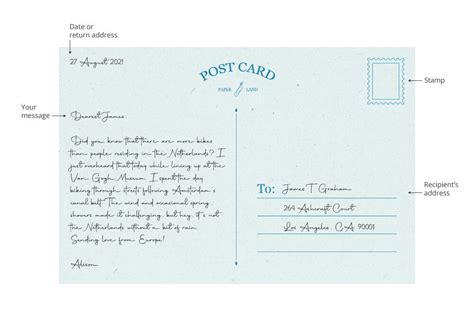 Date or
return address
27 August 2021
POST CARD
PAPER LAND
Stamp
Your
message
Dearest James,
Did you know that there are more bikes
than people residing in the Netherlands? I
just overheard that today while lining up at the
Van Gogh Museum. I spent the day
biking through streets following Amsterdam's
canal belt. The wind and occasional spring
showers made it challenging, but hey, it's not
the Netherlands without a bit of rain.
Sending love from Europe!
Alison
To: James T. Graham
264 Ashcroft Court
Los Angeles, CA 90001
Recipient's
address